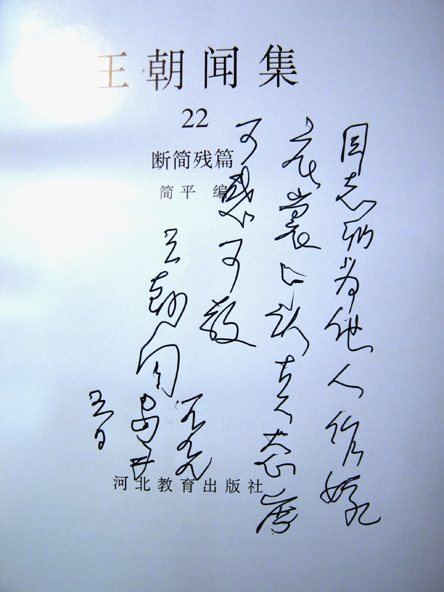 王朝闻集
22
断简残篇
简平 编
同志们为他人作嫁
衣裳的
态度
可感可敬
王朝闻
河北教育出版社